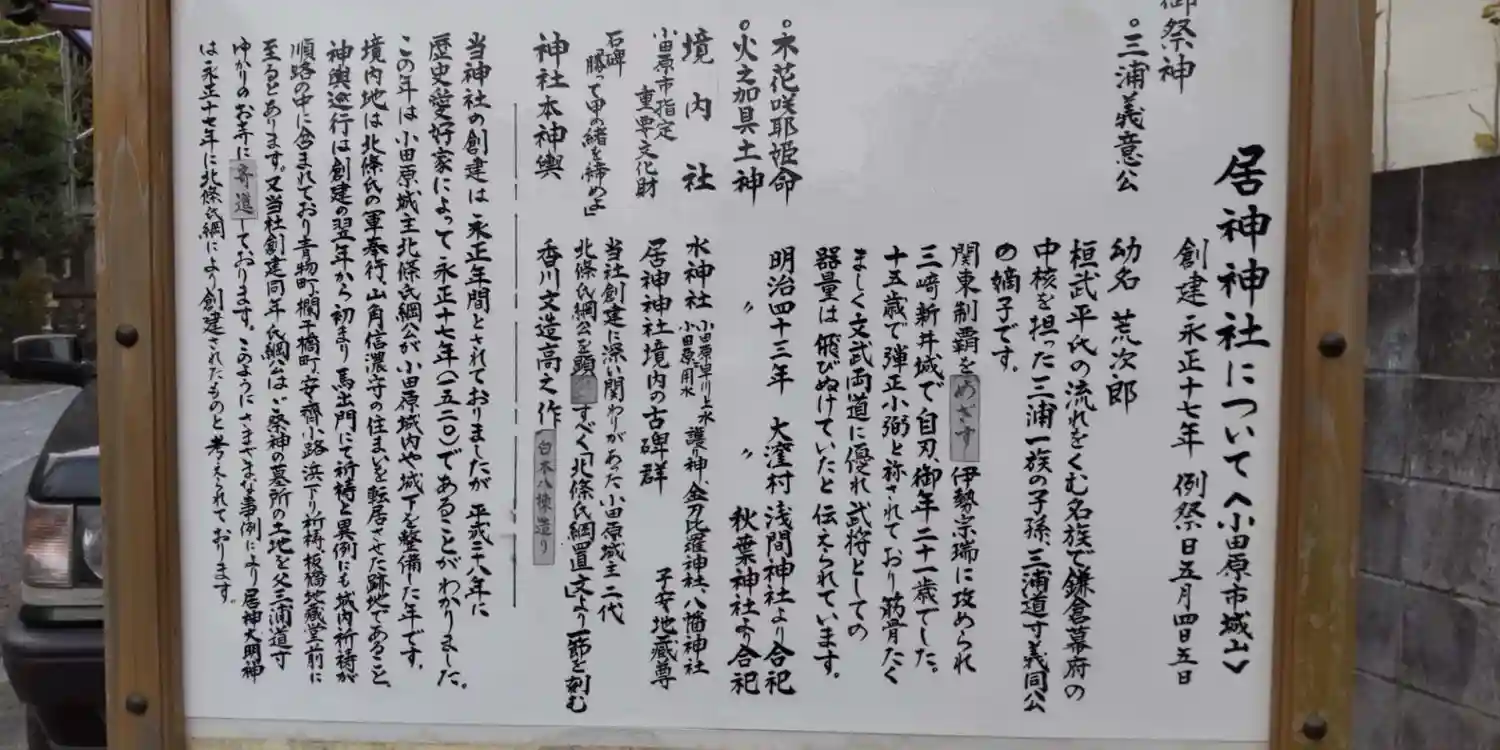 居神神社について〈小田原市城山〉
創建 永正十七年 例祭日五月四日五日
御祭神
。三浦義意公
幼名 荒次郎
桓武平氏の流れをくむ名族で鎌倉幕府の
中核を担った三浦一族の子孫、三浦道寸義同公
の嫡子です。
関東制覇をめざす伊勢宗瑞に攻められ
三崎新井城で自刃、御年二十一歳でした。
十五歳で弾正小弼と称されており筋骨たく
ましく文武両道に優れ武将としての
器量は飛びぬけていたと伝えられています。
。木花咲耶姫命 明治四十三年 大窪村 浅間神社より合祀
。火之加具土神 〃 〃 秋葉神社より合祀
境内社 水神社 小田原早川上水 小田原用水 護り神、金刀比羅神社、八幡神社
小田原市指定 重要文化財 居神神社境内の古碑群 子安地蔵尊
石碑 勝って甲の緒を締めよ」 当社創建に深い関わりがあった小田原城主二代
北條氏綱公を顕 すべく「北條氏綱置文」より一節を刻む
神社本神輿 香川文造高之作 白木八棟造り
当神社の創建は永正年間とされておりましたが平成二十八年に
歴史愛好家によって永正十七年(一五二〇)であることがわかりました。
この年は小田原城主北條氏綱公が小田原城内や城下を整備した年です。
境内地は北條氏の軍奉行、山角信濃守の住まいを転居させた跡地であること、
神輿巡行は創建の翌年から初まり馬出門にて祈祷と異例にも城内祈祷が
順路の中に含まれており青物町、欄干橋町、安斎小路、浜下り祈祷、板橋地蔵堂前に
至るとあります。又当社創建同年、氏綱公はご祭神の墓所の土地を父三浦道寸
ゆかりのお寺に寄進しております。このようにさまざまな事例により居神大明神
は永正十七年に北條氏綱により創建されたものと考えられております。